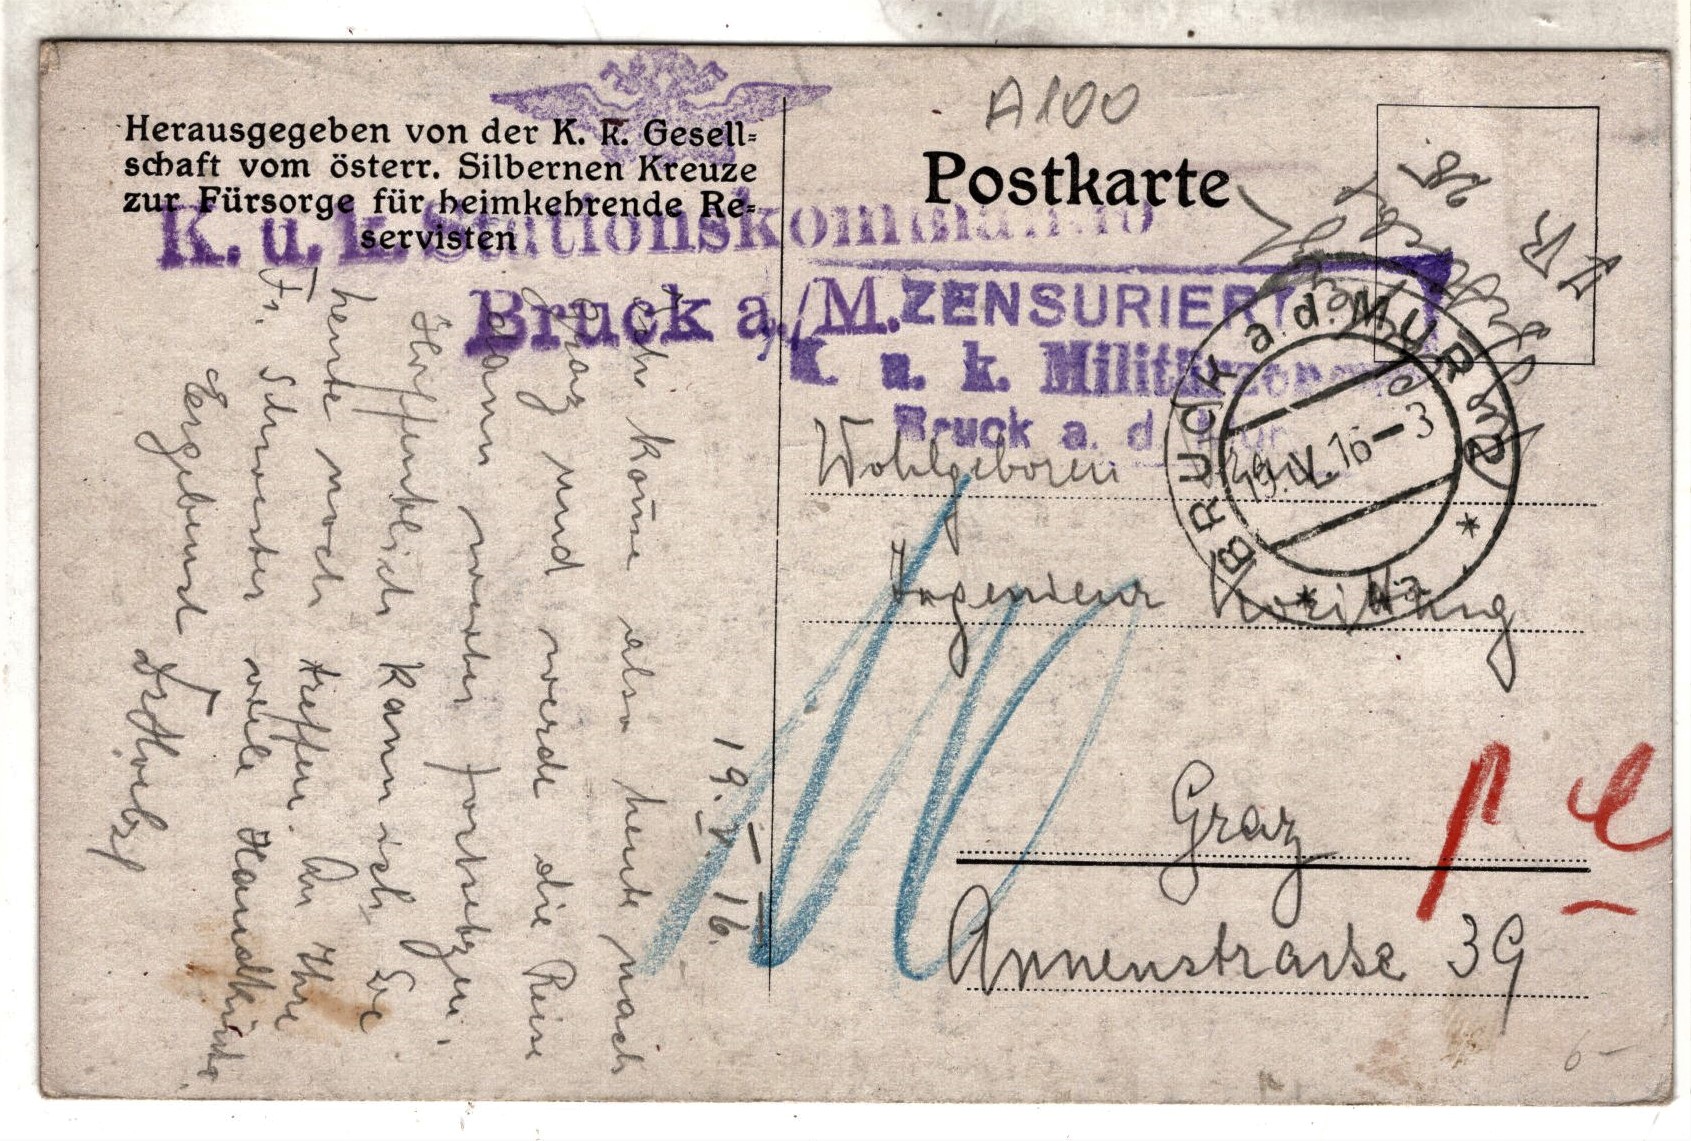 Herausgegeben von der K. K. Gesell=
schaft vom österr. Silbernen Kreuze
zur Fürsorge für heimkehrende Re=
servisten
K. u. k. Stationskommando
Bruck a./M.
A100
Postkarte
ZENSURIERT
K. u. k. Militärzensur
Bruck a. d. Mur.
BRUCK a.d. MUR
19.V.16-3
* 4a *
Wohlgeboren
Ingenieur
Graz
Annenstraße 39
19. V. 16.
Ich komme also heute nach
Graz und werde die Reise
dann weiter fortsetzen.
Hoffentlich kann ich Sie
heute noch treffen. An Ihre
Fr. Schwester viele Handküsse.
Ergebenst
6-